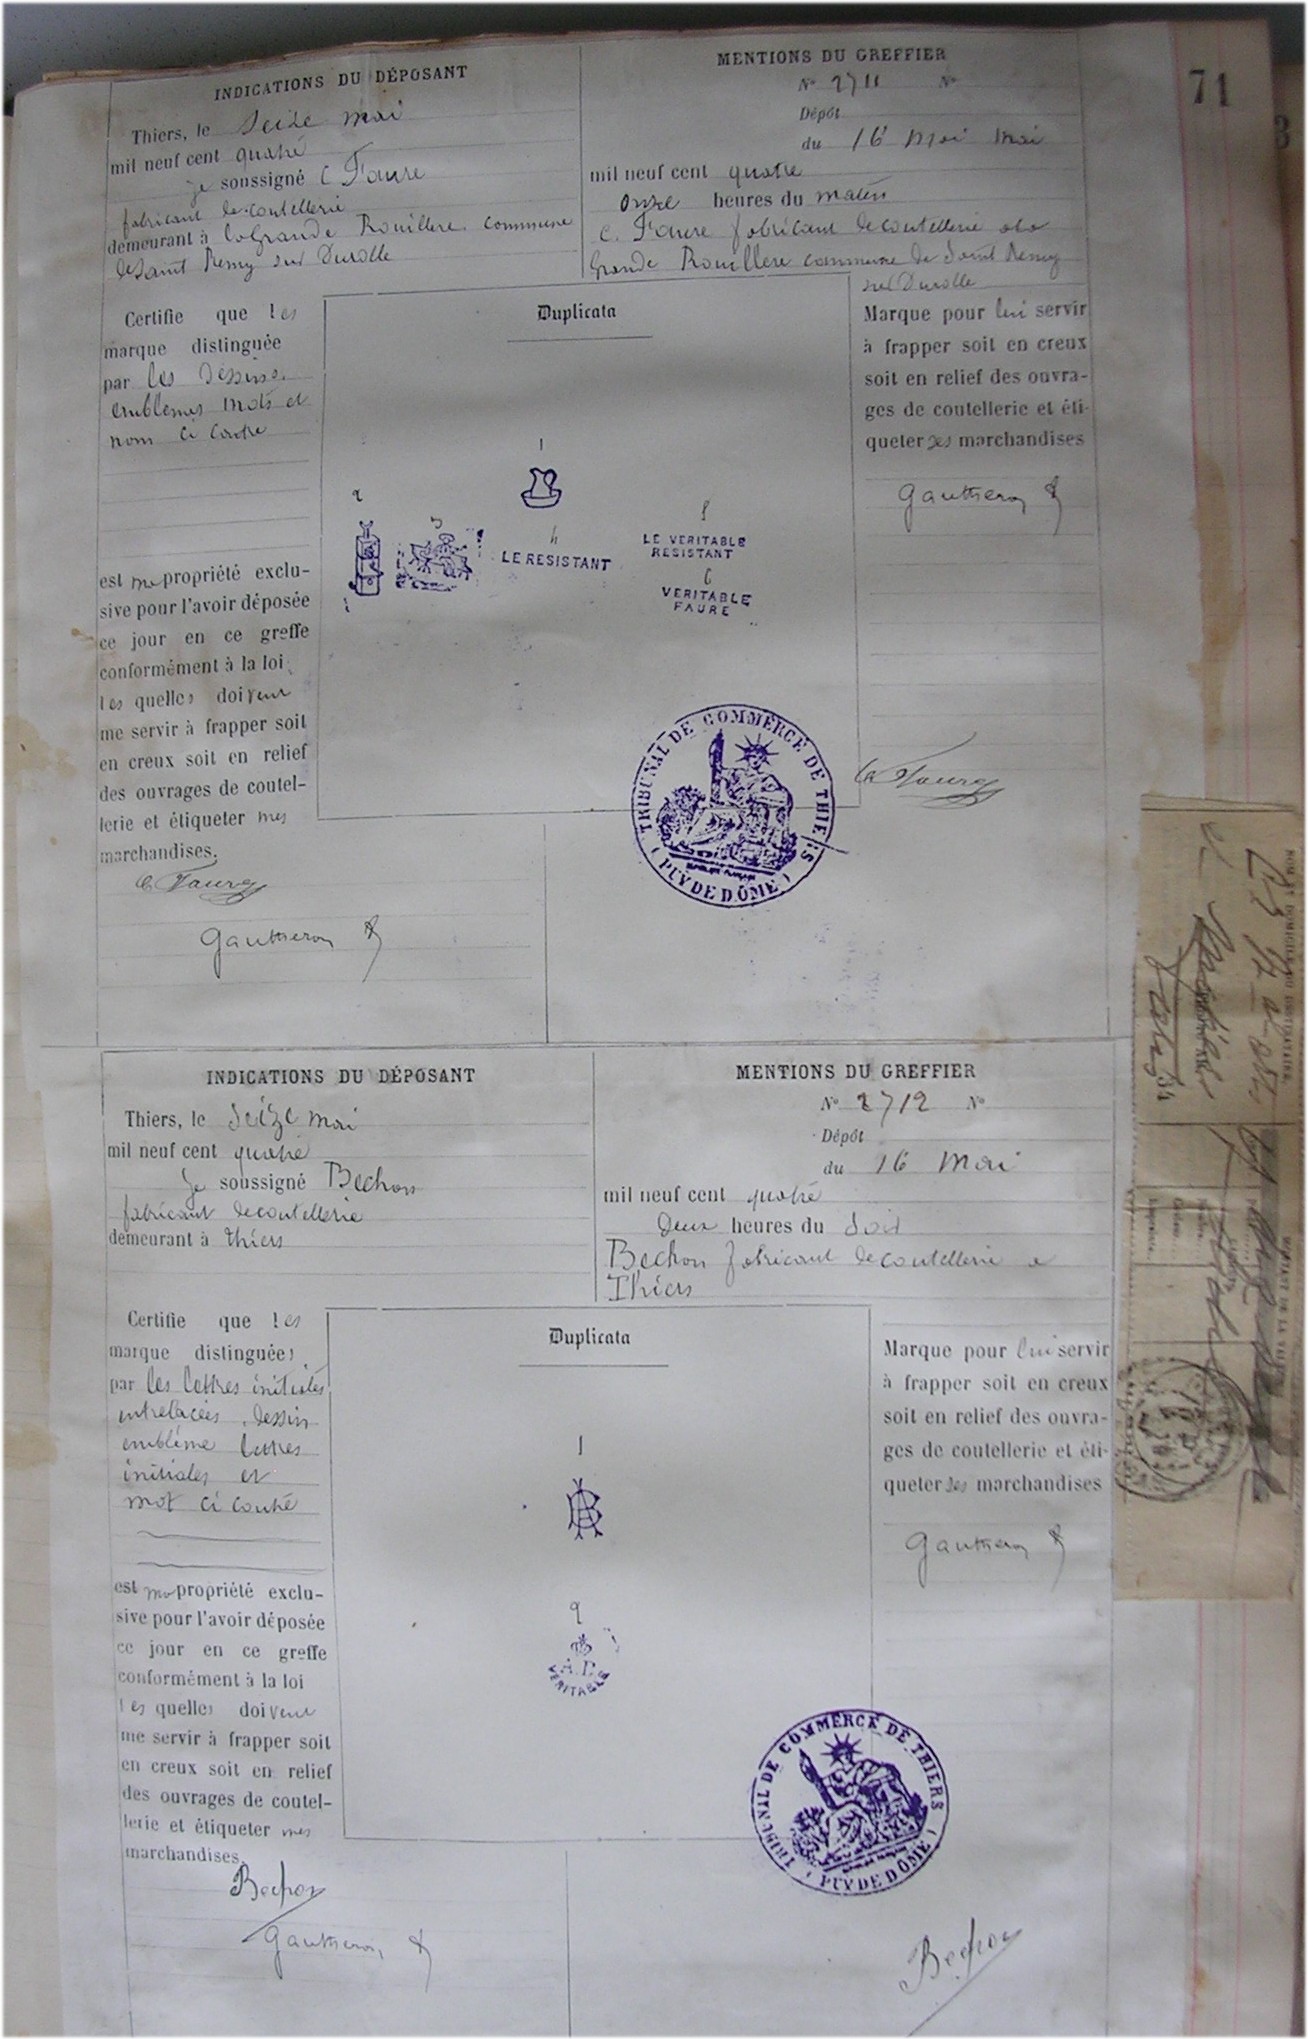 71
INDICATIONS DU DÉPOSANT
Thiers, le Seize mai
mil neuf cent quatre
je soussigné C Faure
fabricant de coutellerie
demeurant à la Grande Rouillere commune
de Saint Remy sur Durolle
MENTIONS DU GREFFIER
N° 2711 N°
Dépôt
du 16 Mai Mai
mil neuf cent quatre
onze heures du matin
C. Faure fabricant de coutellerie a la
Grande Rouillere commune de Saint Remy
sur Durolle
Certifie que les
marque distinguée
par les dessins
emblemes mots et
nom ci contre
est ma propriété exclu-
sive pour l'avoir déposée
ce jour en ce greffe
conformément à la loi
les quelles doivent
me servir à frapper soit
en creux soit en relief
des ouvrages de coutel-
lerie et étiqueter mes
marchandises.
C Faure
Gautheron
Duplicata
1
2
3
4
LE RESISTANT
5
LE VERITABLE
RESISTANT
6
VERITABLE
FAURE
TRIBUNAL DE COMMERCE DE THIERS
(PUY DE DÔME)
Marque pour lui servir
à frapper soit en creux
soit en relief des ouvra-
ges de coutellerie et éti-
queter ses marchandises
Gautheron
C Faure
INDICATIONS DU DÉPOSANT
Thiers, le Seize mai
mil neuf cent quatre
Je soussigné Bechon
fabricant de coutellerie
demeurant à Thiers
MENTIONS DU GREFFIER
N° 2712 N°
Dépôt
du 16 Mai
mil neuf cent quatre
Deux heures du Soir
Bechon fabricant de coutellerie a
Thiers
Certifie que les
marque distinguées
par les lettres initiales
entrelacées, dessin
emblême lettres
initiales et
mot ci contre
est ma propriété exclu-
sive pour l'avoir déposée
ce jour en ce greffe
conformément à la loi
les quelles doivent
me servir à frapper soit
en creux soit en relief
des ouvrages de coutel-
lerie et étiqueter mes
marchandises.
Bechon
Gautheron
Duplicata
1
2
VERITABLE
TRIBUNAL DE COMMERCE DE THIERS
(PUY DE DÔME)
Marque pour lui servir
à frapper soit en creux
soit en relief des ouvra-
ges de coutellerie et éti-
queter ses marchandises
Gautheron
Bechon